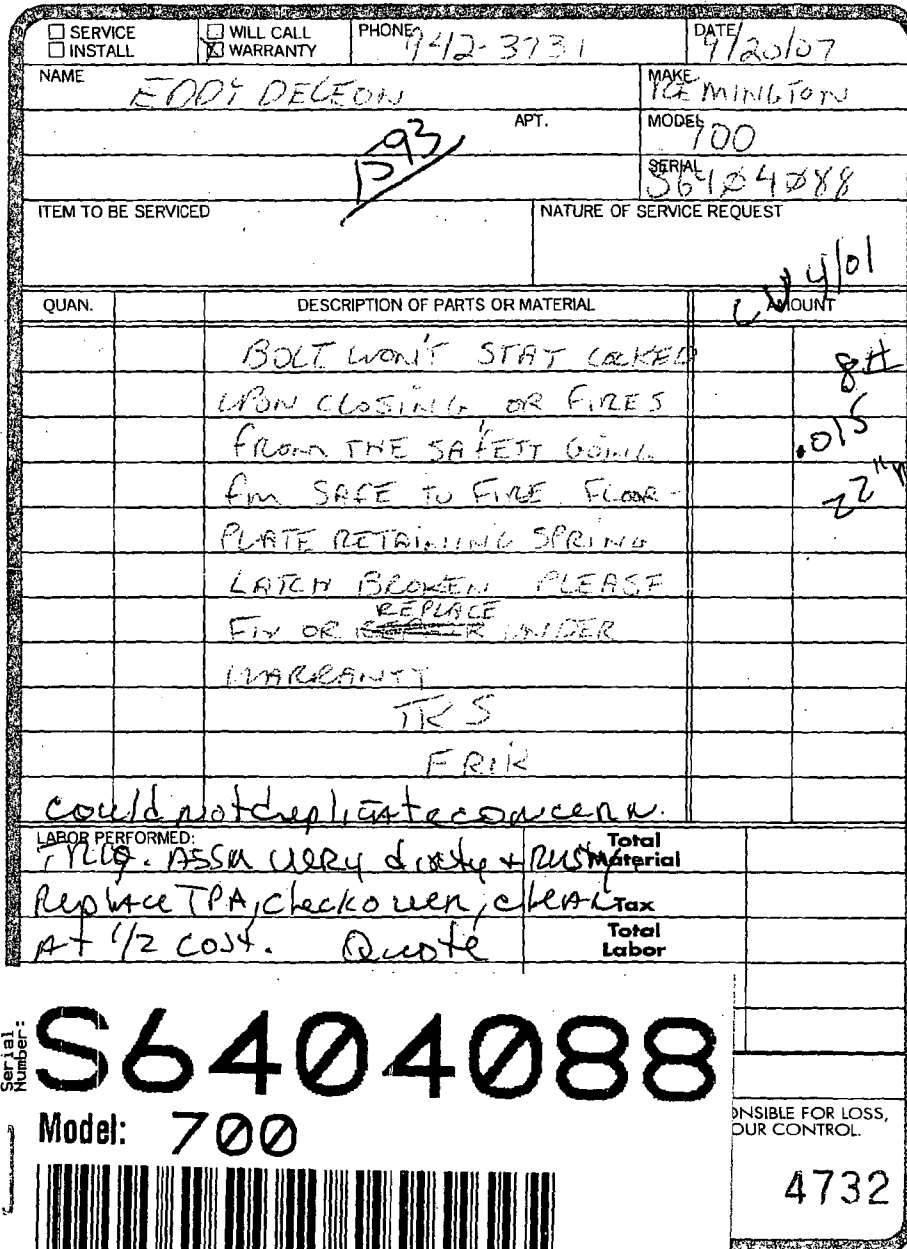 SERVICE
INSTALL
WILL CALL
WARRANTY
PHONE 942-3731
DATE 9/20/07
NAME EDDY DELEON
MAKE REMINGTON
APT.
MODEL 700
1593
SERIAL S6404088
ITEM TO BE SERVICED
NATURE OF SERVICE REQUEST
4/01
QUAN.
DESCRIPTION OF PARTS OR MATERIAL
AMOUNT
BOLT WON'T STAY LOCKED
8#
UPON CLOSING OR FIRES
.015
FROM THE SAFETY GOING
fm SAFE TO FIRE FLOOR-
22"
PLATE RETAINING SPRING
LATCH BROKEN PLEASE
REPLACE
FIX OR UNDER
WARRANTY
TKS
ERIK
could not duplicate concern.
LABOR PERFORMED:
Total Material
Trig. Assm very dirty + Rusty
Replace TPA, check over, clean
Tax
At 1/2 cost. Quote
Total Labor
Serial Number:
S6404088
Model: 700
ONSIBLE FOR LOSS,
OUR CONTROL.
4732